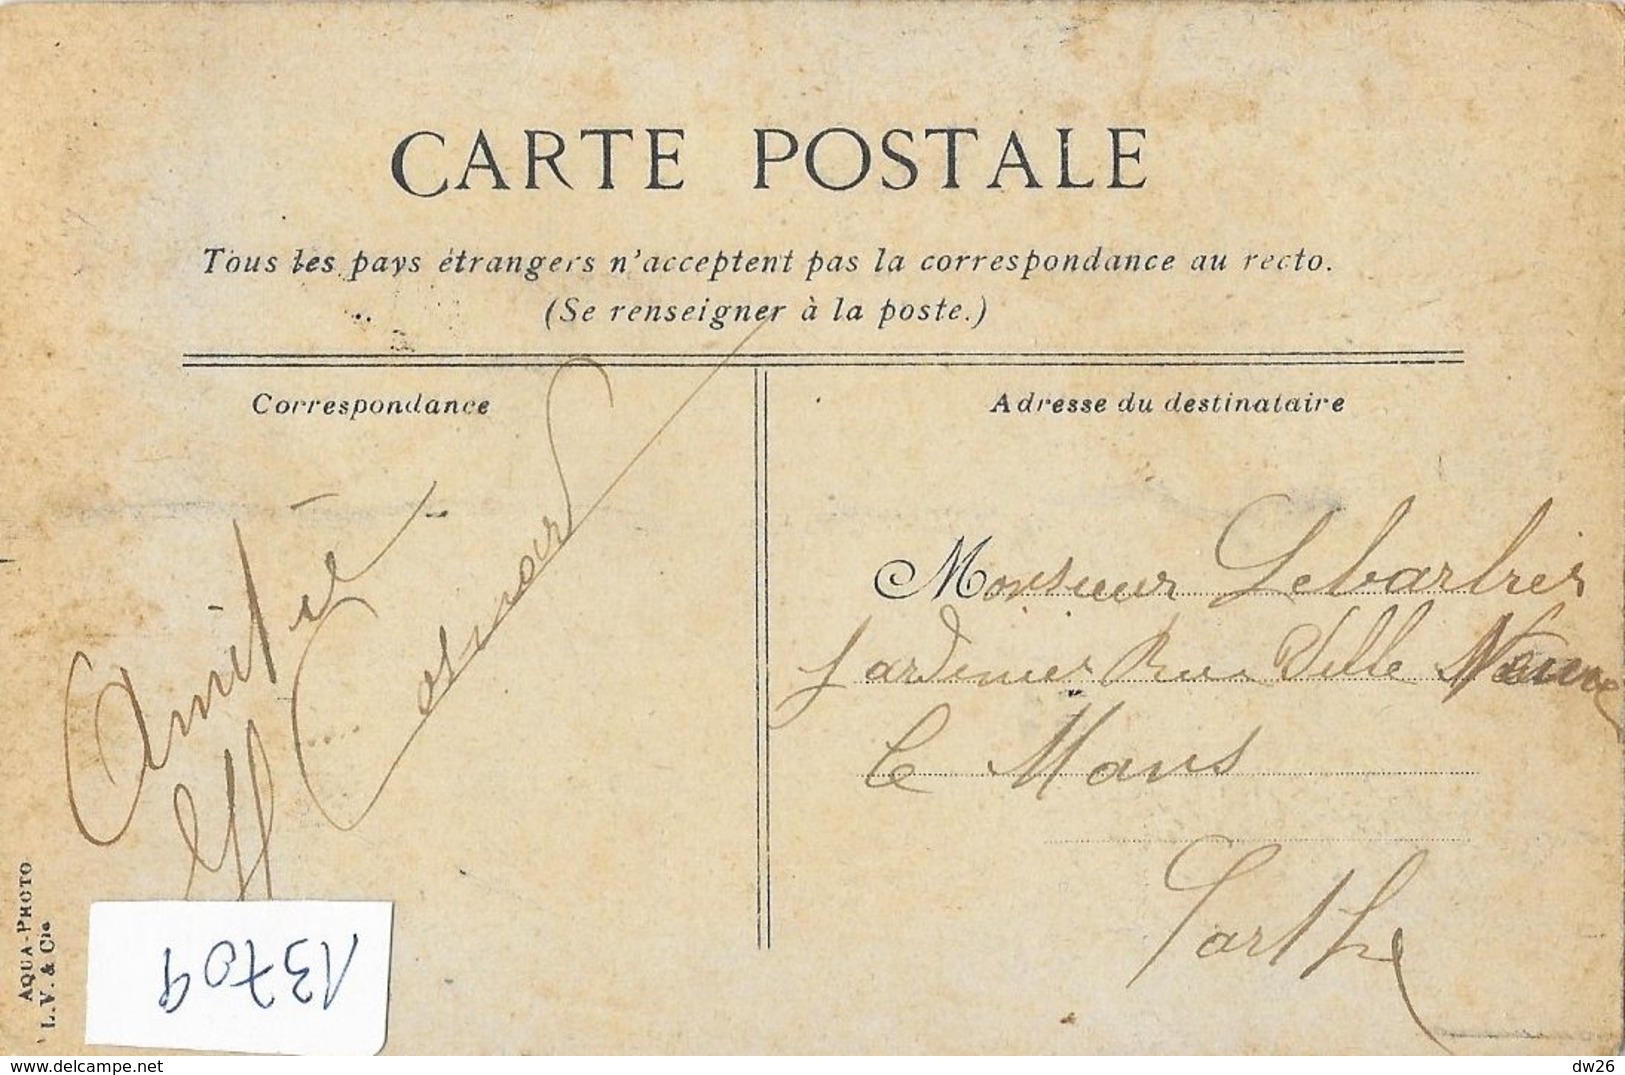 CARTE POSTALE
Tous les pays étrangers n'acceptent pas la correspondance au recto.
(Se renseigner à la poste.)
Correspondance
Adresse du destinataire
Amitié
Monsieur Lebarbier
Jardinier Rue Ville Neuve
Le Mans
Sarthe
AQUA-PHOTO
L.V. & Cie
13709
delcampe.net
dw26